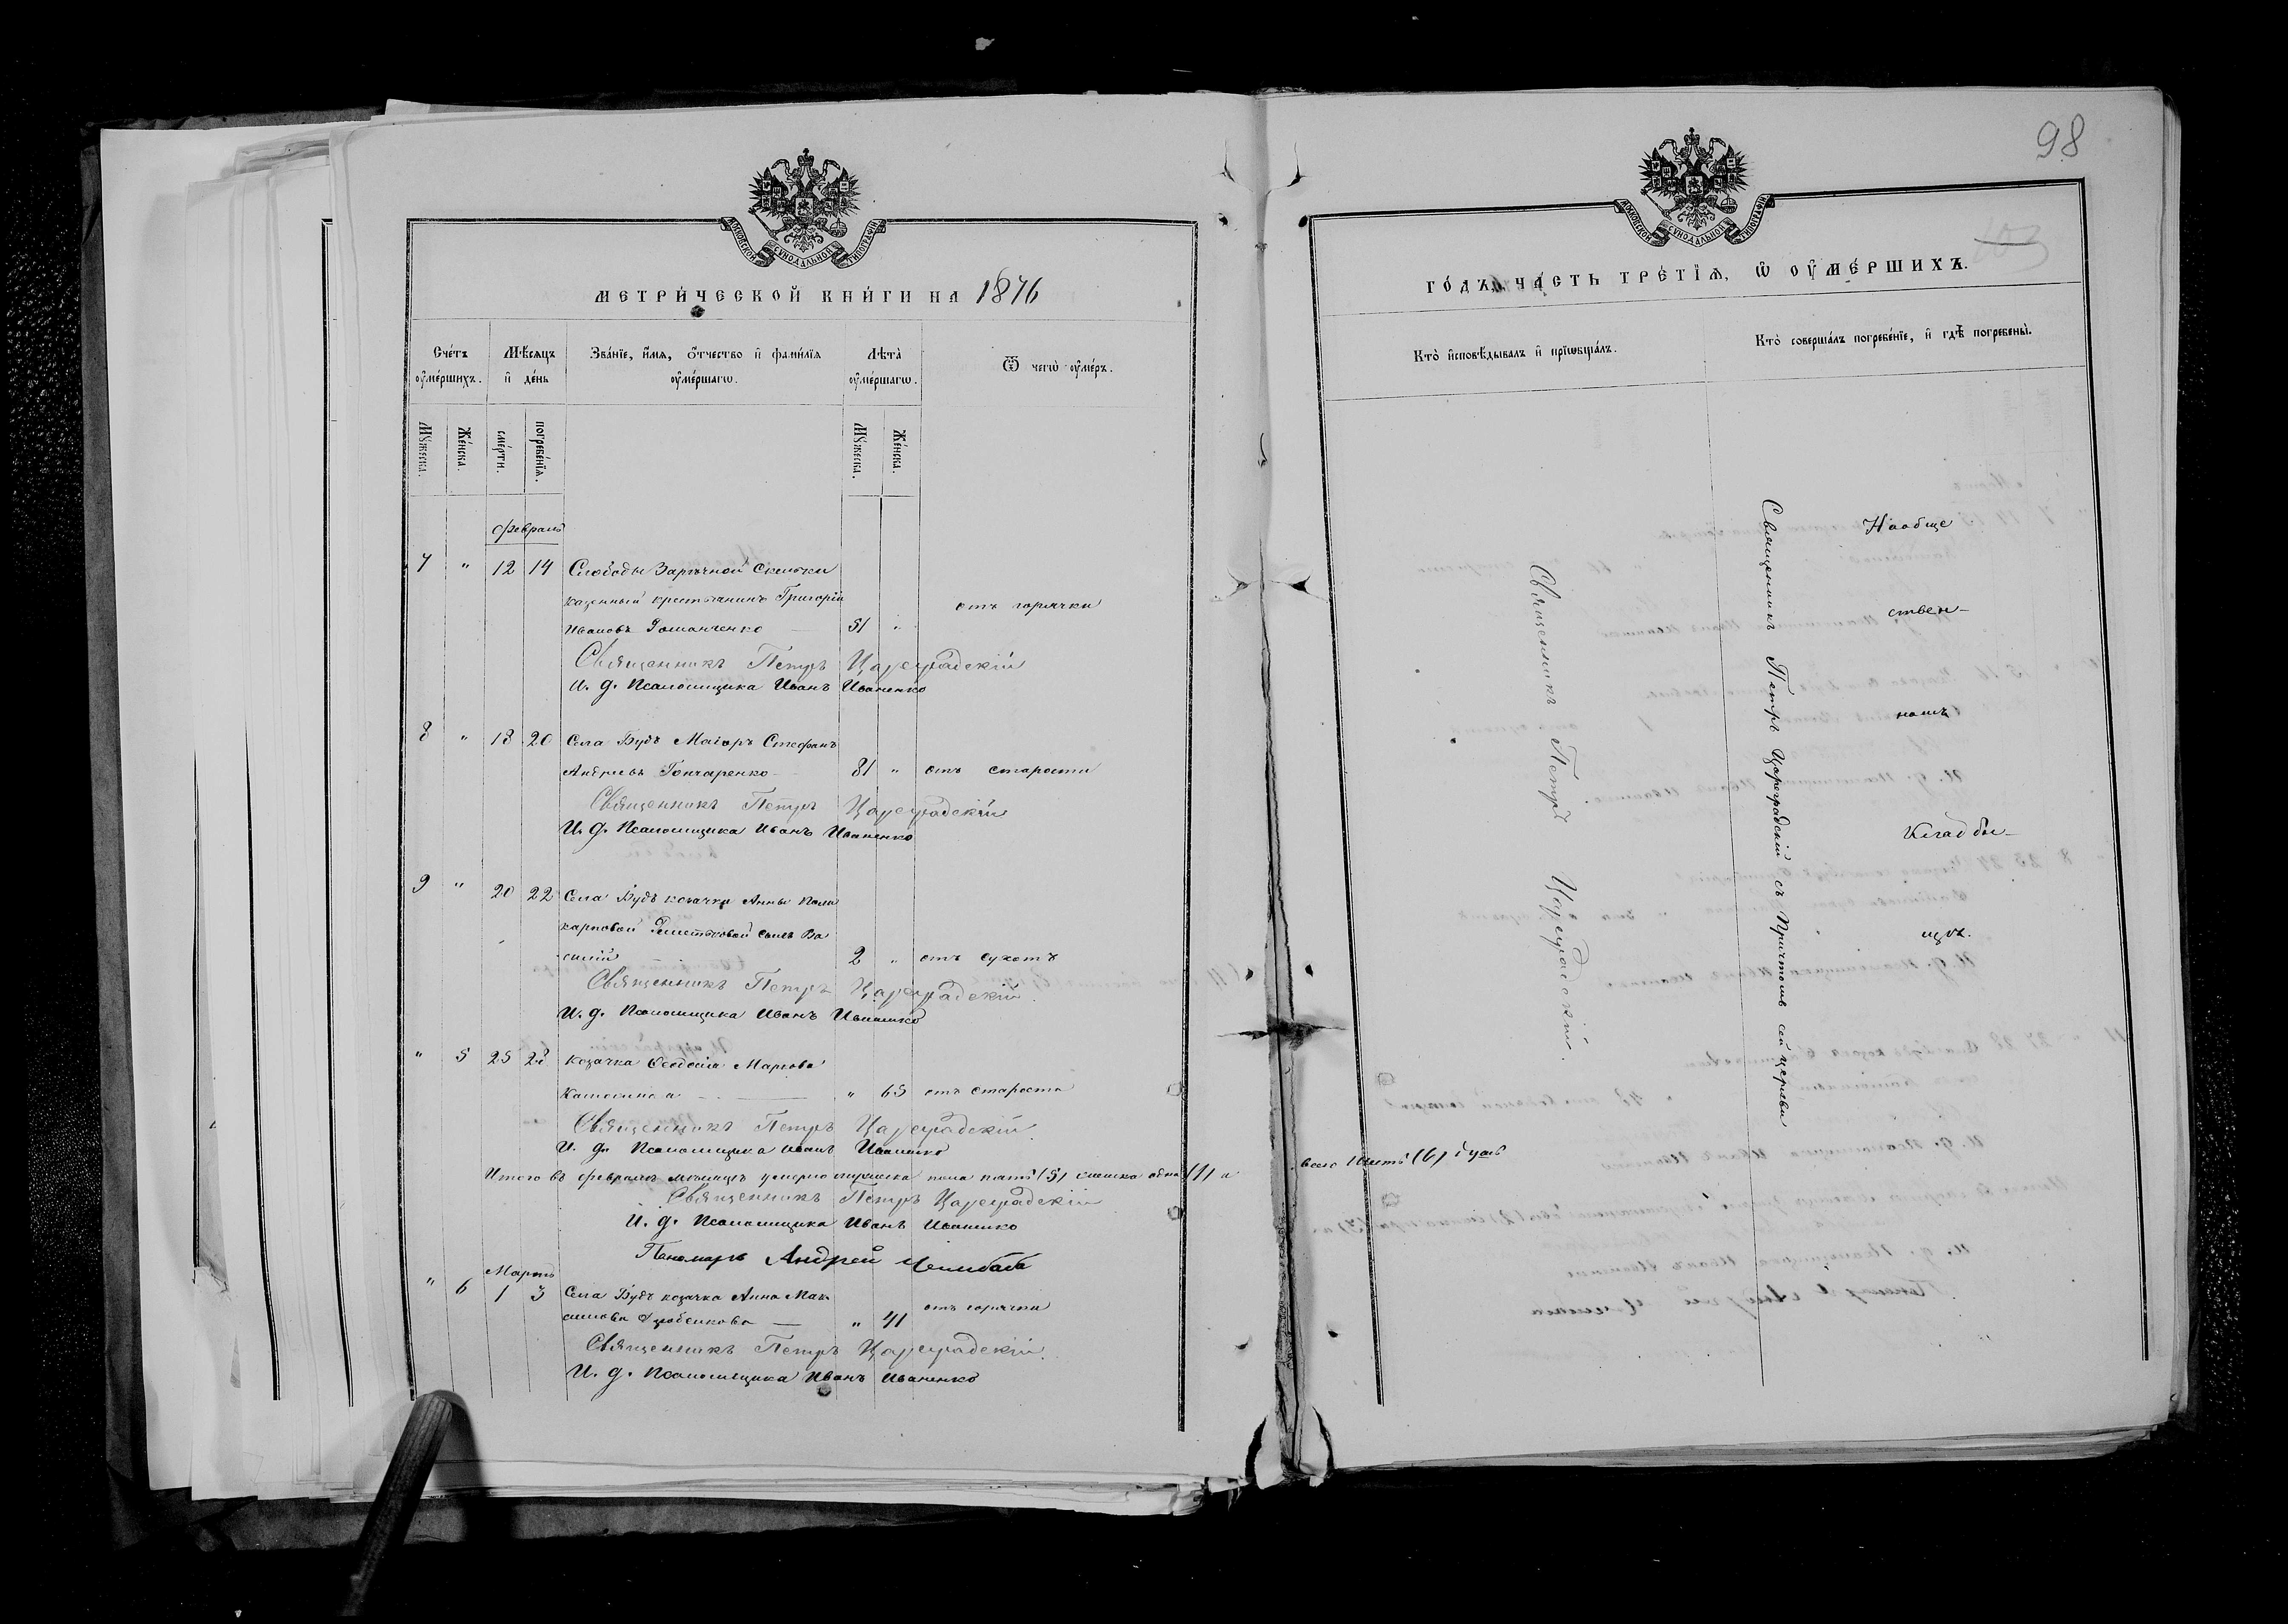 98
103
МОСКОВСКОЙ СѴНОДАЛЬНОЙ ТИПОГРАФІИ
МЕТРИ́ЧЕСКОЙ КНИ́ГИ НА 1876
Сче́тъ ᲂу҆ме́ршихъ.
Мѣ́сяцъ и҆ де́нь
Зва́нїе, и҆́мя, ѻ҆́тчество и҆ фами́лїя ᲂу҆ме́ршагѡ.
Лѣ́та ᲂу҆ме́ршагѡ.
Ѿ чегѡ̀ ᲂу҆ме́ръ.
Мꙋ́жеска.
Же́нска.
сме́рти.
погребе́нїѧ.
Мꙋ́жеска.
Же́нска.
Февраль
7 " 12 14 Слободы Заречной
казенный крестьянинъ Григорій
Ивановъ Романченко — 51 " отъ горячки
Священникъ Петръ Цареградскій
И. д. Псаломщика Иванъ Иваненко
8 " 18 20 Села Будъ Маіоръ Стефанъ
Андреевъ Гончаренко — 81 " отъ старости
Священникъ Петръ Цареградскій
И. д. Псаломщика Иванъ Иваненко
9 " 20 22 Села Будъ козачки Анны Поли
карповой сынъ Ва
силій 2 " отъ сухотъ
Священникъ Петръ Цареградскій
И. д. Псаломщика Иванъ Иваненко
" 5 25 28 Козачка Феодосія Маркова
" 65 отъ старости
Священникъ Петръ Цареградскій
И. д. Псаломщика Иванъ Иваненко
Итого въ февралѣ мѣсяцѣ умерло мужеска пола пять (5) женска одна (1) а
всего шесть (6) душъ
Священникъ Петръ Цареградскій
И. д. Псаломщика Иванъ Иваненко
Пономарь Андрей
Мартъ
" 6 1 3 Села Будъ козачка Анна Мак
симова — " 41 отъ горячки
Священникъ Петръ Цареградскій
И. д. Псаломщика Иванъ Иваненко
МОСКОВСКОЙ СѴНОДАЛЬНОЙ ТИПОГРАФІИ
ГО́ДЪ, ЧА́СТЬ ТРЕ́ТЇѦ, Ѡ҆ ОУ҆МЕ́РШИХЪ.
Кто̀ и҆сповѣ́дывалъ и҆ прїѡбща́лъ.
Кто̀ соверша́лъ погребе́нїе, и҆ гдѣ̀ погребены̀.
Священникъ Петръ Цареградскій.
Священникъ Петръ Цареградскій съ Причтомъ сей церкви
На обще
ствен-
номъ
кладби-
щѣ.